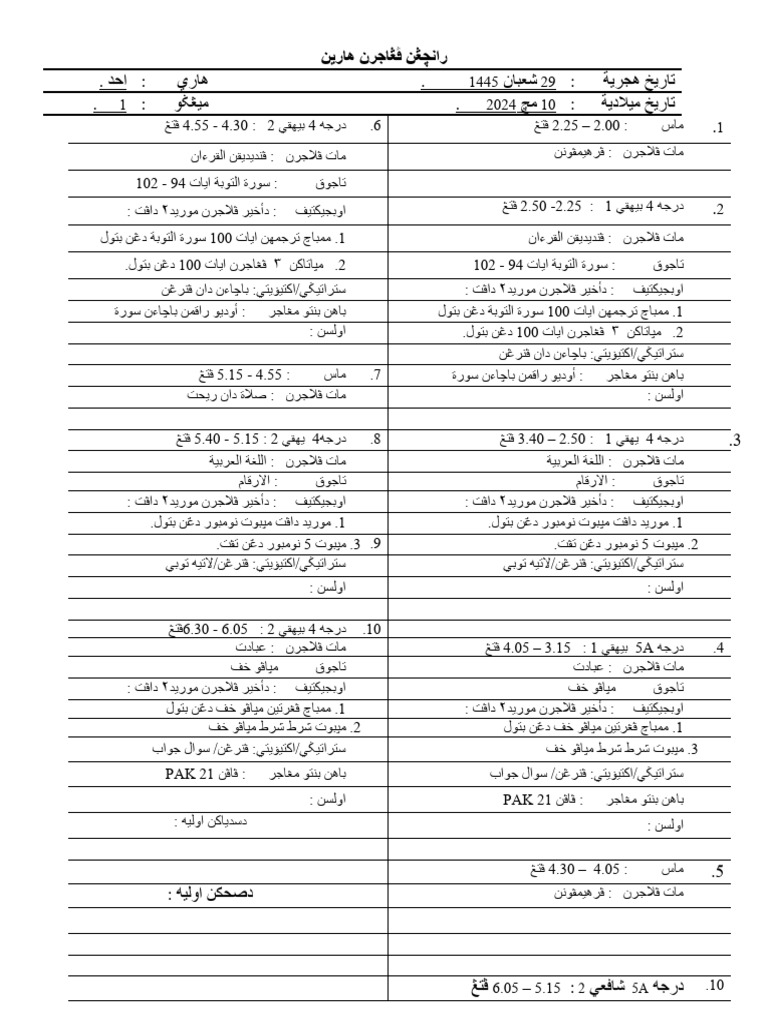 رانچڠن ڤڠاجرن هارين
تاريخ هجرية : 29 شعبان 1445 .
هاري : احد .
تاريخ ميلادية : 10 مچ 2024 .
ميڠݢو : 1 .
1. ماس : 2.00 – 2.25 ڤتڠ
مات ڤلاجرن : ڤرهيمڤونن
2. درجه 4 بيهقي 1 : 2.25- 2.50 ڤتڠ
مات ڤلاجرن : ڤنديديقن القرءان
تاجوق : سورة التوبة ايات 94 - 102
اوبجيكتيف : دأخير ڤلاجرن موريد٢ داڤت :
1. ممباچ ترجمهن ايات 100 سورة التوبة دڠن بتول
2. مپاتاكن ٣ ڤڠاجرن ايات 100 دڠن بتول.
ستراتيݢي/اكتيۏيتي: باچاءن دان ڤنرڠن
باهن بنتو مڠاجر : أوديو راقمن باچاءن سورة
اولسن :
3. درجه 4 يهقي 1 : 2.50 – 3.40 ڤتڠ
مات ڤلاجرن : اللغة العربية
تاجوق : الارقام
اوبجيكتيف : دأخير ڤلاجرن موريد٢ داڤت :
1. موريد داڤت مپبوت نومبور دڠن بتول.
2. مپبوت 5 نومبور دڠن تڤت.
ستراتيݢي/اكتيۏيتي: ڤنرڠن/لاتيه توبي
اولسن :
4. درجه 5A بيهقي 1 : 3.15 – 4.05 ڤتڠ
مات ڤلاجرن : عبادت
تاجوق مپاڤو خف
اوبجيكتيف : دأخير ڤلاجرن موريد٢ داڤت :
1. ممباچ ڤڠرتين مپاڤو خف دڠن بتول
3. مپبوت شرط شرط مپاڤو خف
ستراتيݢي/اكتيۏيتي: ڤنرڠن/ سوال جواب
باهن بنتو مڠاجر : ڤاڤن PAK 21
اولسن :
5. ماس : 4.05 – 4.30 ڤتڠ
مات ڤلاجرن : ڤرهيمڤونن
10. درجه 5A شافعي 2 : 5.15 – 6.05 ڤتڠ
6. درجه 4 بيهقي 2 : 4.30 - 4.55 ڤتڠ
مات ڤلاجرن : ڤنديديقن القرءان
تاجوق : سورة التوبة ايات 94 - 102
اوبجيكتيف : دأخير ڤلاجرن موريد٢ داڤت :
1. ممباچ ترجمهن ايات 100 سورة التوبة دڠن بتول
2. مپاتاكن ٣ ڤڠاجرن ايات 100 دڠن بتول.
ستراتيݢي/اكتيۏيتي: باچاءن دان ڤنرڠن
باهن بنتو مڠاجر : أوديو راقمن باچاءن سورة
اولسن :
7. ماس : 4.55 - 5.15 ڤتڠ
مات ڤلاجرن : صلاة دان ريحت
8. درجه4 يهقي 2 : 5.15 - 5.40 ڤتڠ
مات ڤلاجرن : اللغة العربية
تاجوق : الارقام
اوبجيكتيف : دأخير ڤلاجرن موريد٢ داڤت :
1. موريد داڤت مپبوت نومبور دڠن بتول.
9. 3. مپبوت 5 نومبور دڠن تڤت.
ستراتيݢي/اكتيۏيتي: ڤنرڠن/لاتيه توبي
اولسن :
10. درجه 4 بيهقي 2 : 6.05 - 6.30ڤتڠ
مات ڤلاجرن : عبادت
تاجوق مپاڤو خف
اوبجيكتيف : دأخير ڤلاجرن موريد٢ داڤت :
1. ممباچ ڤڠرتين مپاڤو خف دڠن بتول
2. مپبوت شرط شرط مپاڤو خف
ستراتيݢي/اكتيۏيتي: ڤنرڠن/ سوال جواب
باهن بنتو مڠاجر : ڤاڤن PAK 21
اولسن :
دسدياكن اوليه :
دصحكن اوليه :